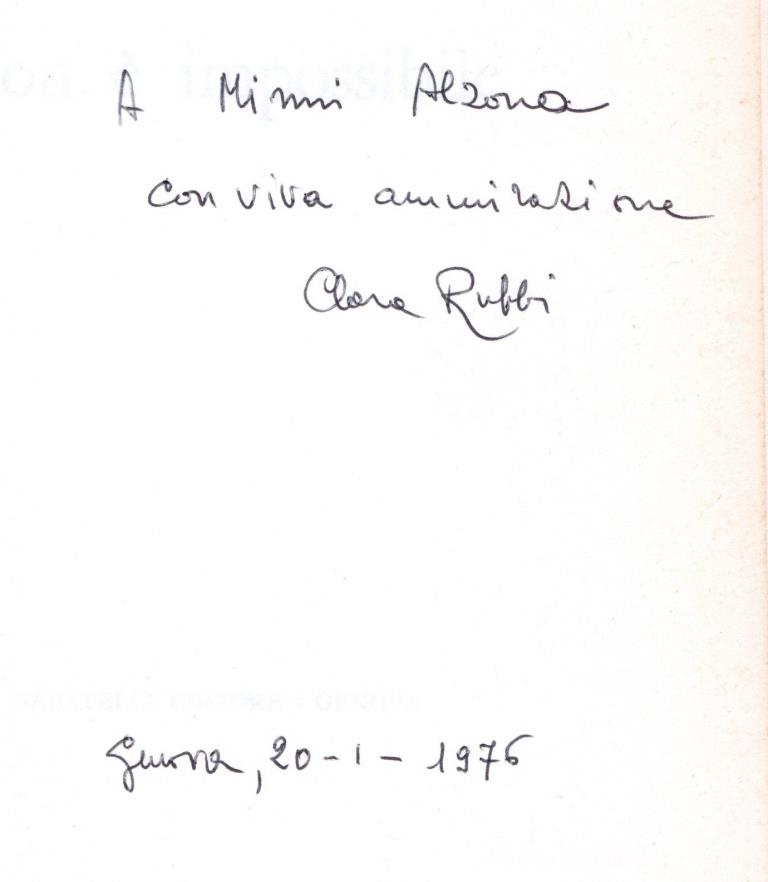 A Mimì Alzona
con viva ammirazione
Clara Rubbi
Genova, 20-1-1976